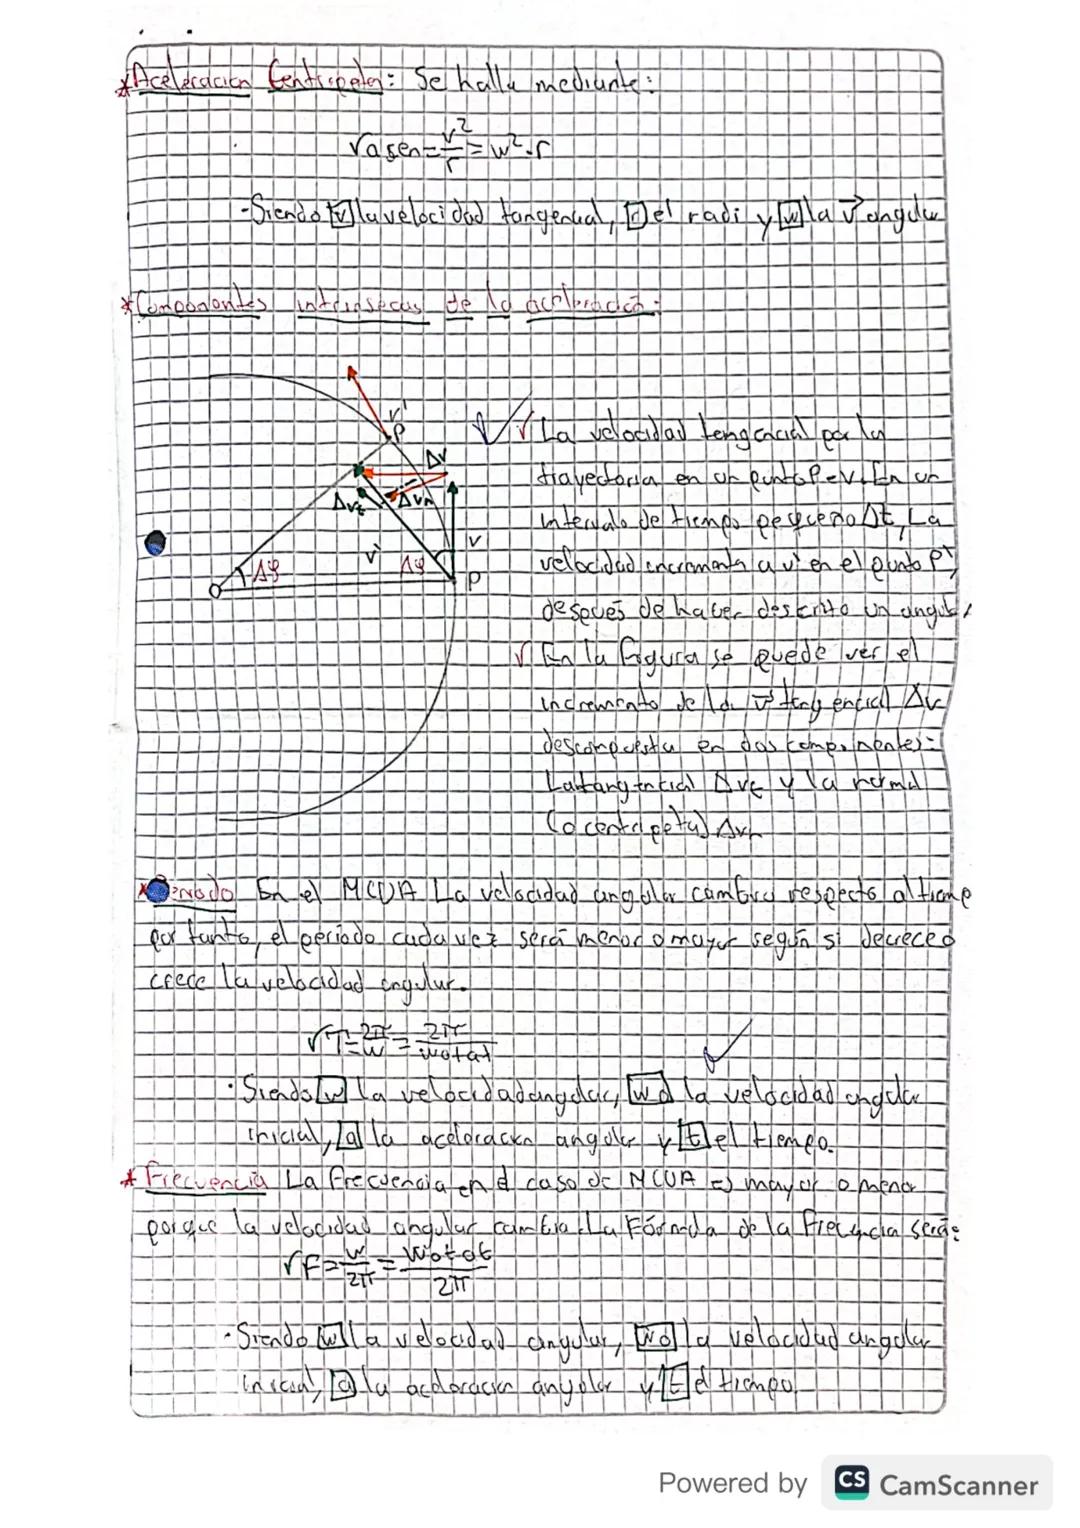 *Aceleracion Centripeta: Se halla mediante:
√ asen=v²/r=w²·r
-Siendo v la velocidad tangencial, r el radi y w la v angular
*Componentes intrinsecas de la aceleración:
v'
P'
Δv
Δvn
Δvt
v
v'
Δφ
Δφ
O
P
√ La velocidad tangencial por la
trayectoria en un punto P=v. En un
intervalo de tiempo pequeño Δt, La
velocidad incrementa a v' en el punto P',
después de haber descrito un angulo
√ En la figura se puede ver el
incremento de la v tangencial Δv
descompuesta en dos componentes:
La tangencial Δvt y la normal
(o centripeta) Δvn
*Periodo En el MCUA La velocidad angular cambia respecto al tiempo
por tanto, el período cada vez será menor o mayor según si decrece o
crece la velocidad angular.
√ T=2π/w=2π/wo+at
·Siendo w la velocidad angular, wo la velocidad angular
inicial, a la aceleracion angular y t el tiempo.
*Frecuencia La frecuencia en el caso de MCUA es mayor o menor
porque la velocidad angular cambia. La Fórmula de la frecuencia será:
√ F=w/2π=wo+at/2π
·Siendo w la velocidad angular, wo la velocidad angular
inicial, a la aceleracion angular y t el tiempo.
Powered by CS CamScanner